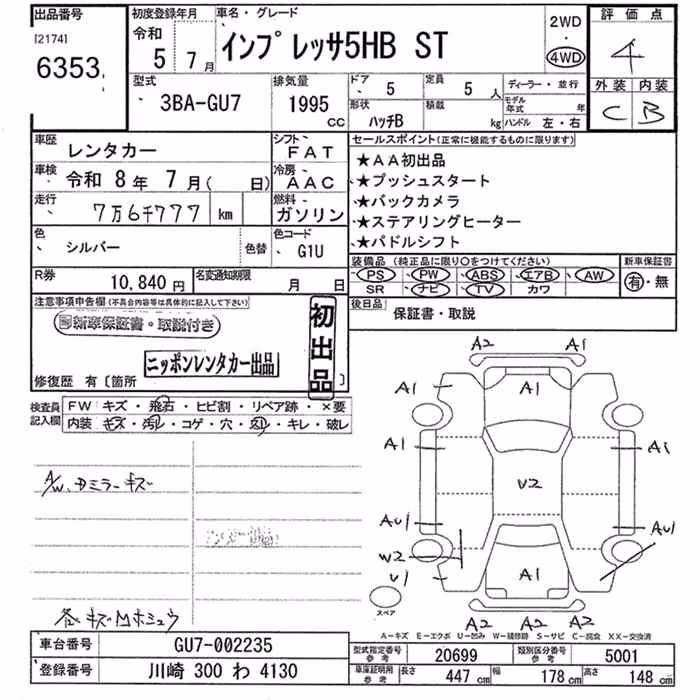 出品番号
[2174]
6353
初度登録年月
令和
5 7月
車名・グレード
インプレッサ5HB ST
2WD
・
4WD
評価点
4
外装 内装
C B
型式
3BA-GU7
排気量
1995
CC
ドア 5
定員 5人
ディーラー・並行
形状
ハッチB
積載
kg
モデル年式 年
ハンドル 左・右
車歴 レンタカー
シフト FAT
車検 令和 8年 7月( 日)
冷房 AAC
走行 7万6千777 km
燃料 ガソリン
色 シルバー 色替
色コード G1U
R券 10,840円
名変通知期限 月 日
セールスポイント(正常に機能するものに限ります)
★AA初出品
★プッシュスタート
★バックカメラ
★ステアリングヒーター
★パドルシフト
装備品 (純正品に限り○をつけてください)
PS・PW・ABS・エアB・AW
SR・ナビ・TV・カワ
新車保証書
有・無
後日品
保証書・取説
注意事項申告欄(不具合内容等は具体的に記入して下さい)
新車保証書・取説付き
初出品
ニッポンレンタカー出品
修復歴 有〔箇所 〕
検査員記入欄
FW キズ・飛石・ヒビ割・リペア跡・×要
内装 キズ・汚レ・コゲ・穴・凹レ・キレ・破レ
A/W、Dミラーキズ
各キズ凹ホシュウ
A2 A1
A1 A1
A1 A1
U2
AU1 AU1
W2
U1 A1
A2 A2 A2
スペア
A−キズ E−エクボ U−凹み W−補修跡 S−サビ C−腐食 XX−交換済
車台番号 GU7-002235
登録番号 川崎 300 わ 4130
型式指定番号 参考 20699
類別区分番号 参考 5001
車庫証明用 参考 長さ 447cm 幅 178cm 高さ 148cm